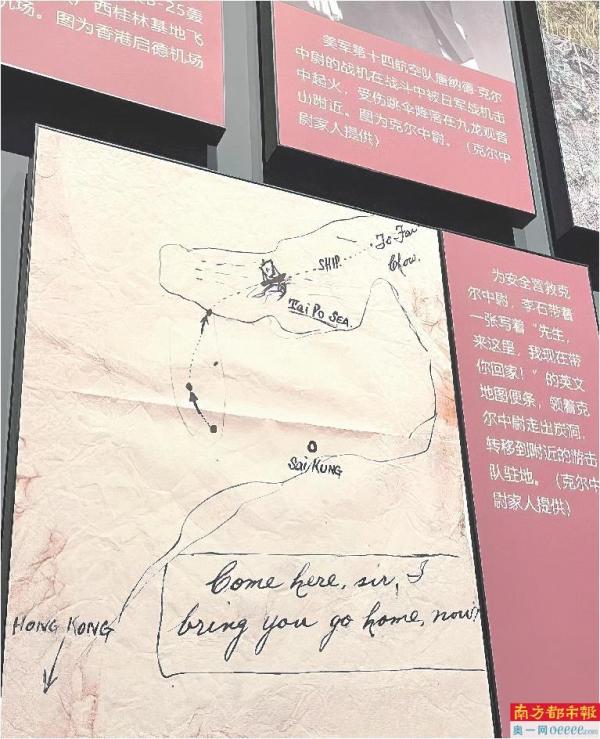 B-25轰
西桂林基地飞
机场。图为香港启德机场
美军第十四航空队唐纳德·克尔
中尉的战机在战斗中被日军战机击
中起火，受伤跳伞降落在九龙观音
山附近。图为克尔中尉。（克尔中
尉家人提供）
SHIP.
Chow.
Tai Po SEA.
Sai KUNG
HONG KONG
Come here, sir, I
bring you go home, now!
为安全营救克
尔中尉，李石带着
一张写着“先生，
来这里，我现在带
你回家！”的英文
地图便条，领着克
尔中尉走出炭洞，
转移到附近的游击
队驻地。（克尔中
尉家人提供）
南方都市報
奥一网oeeee.com